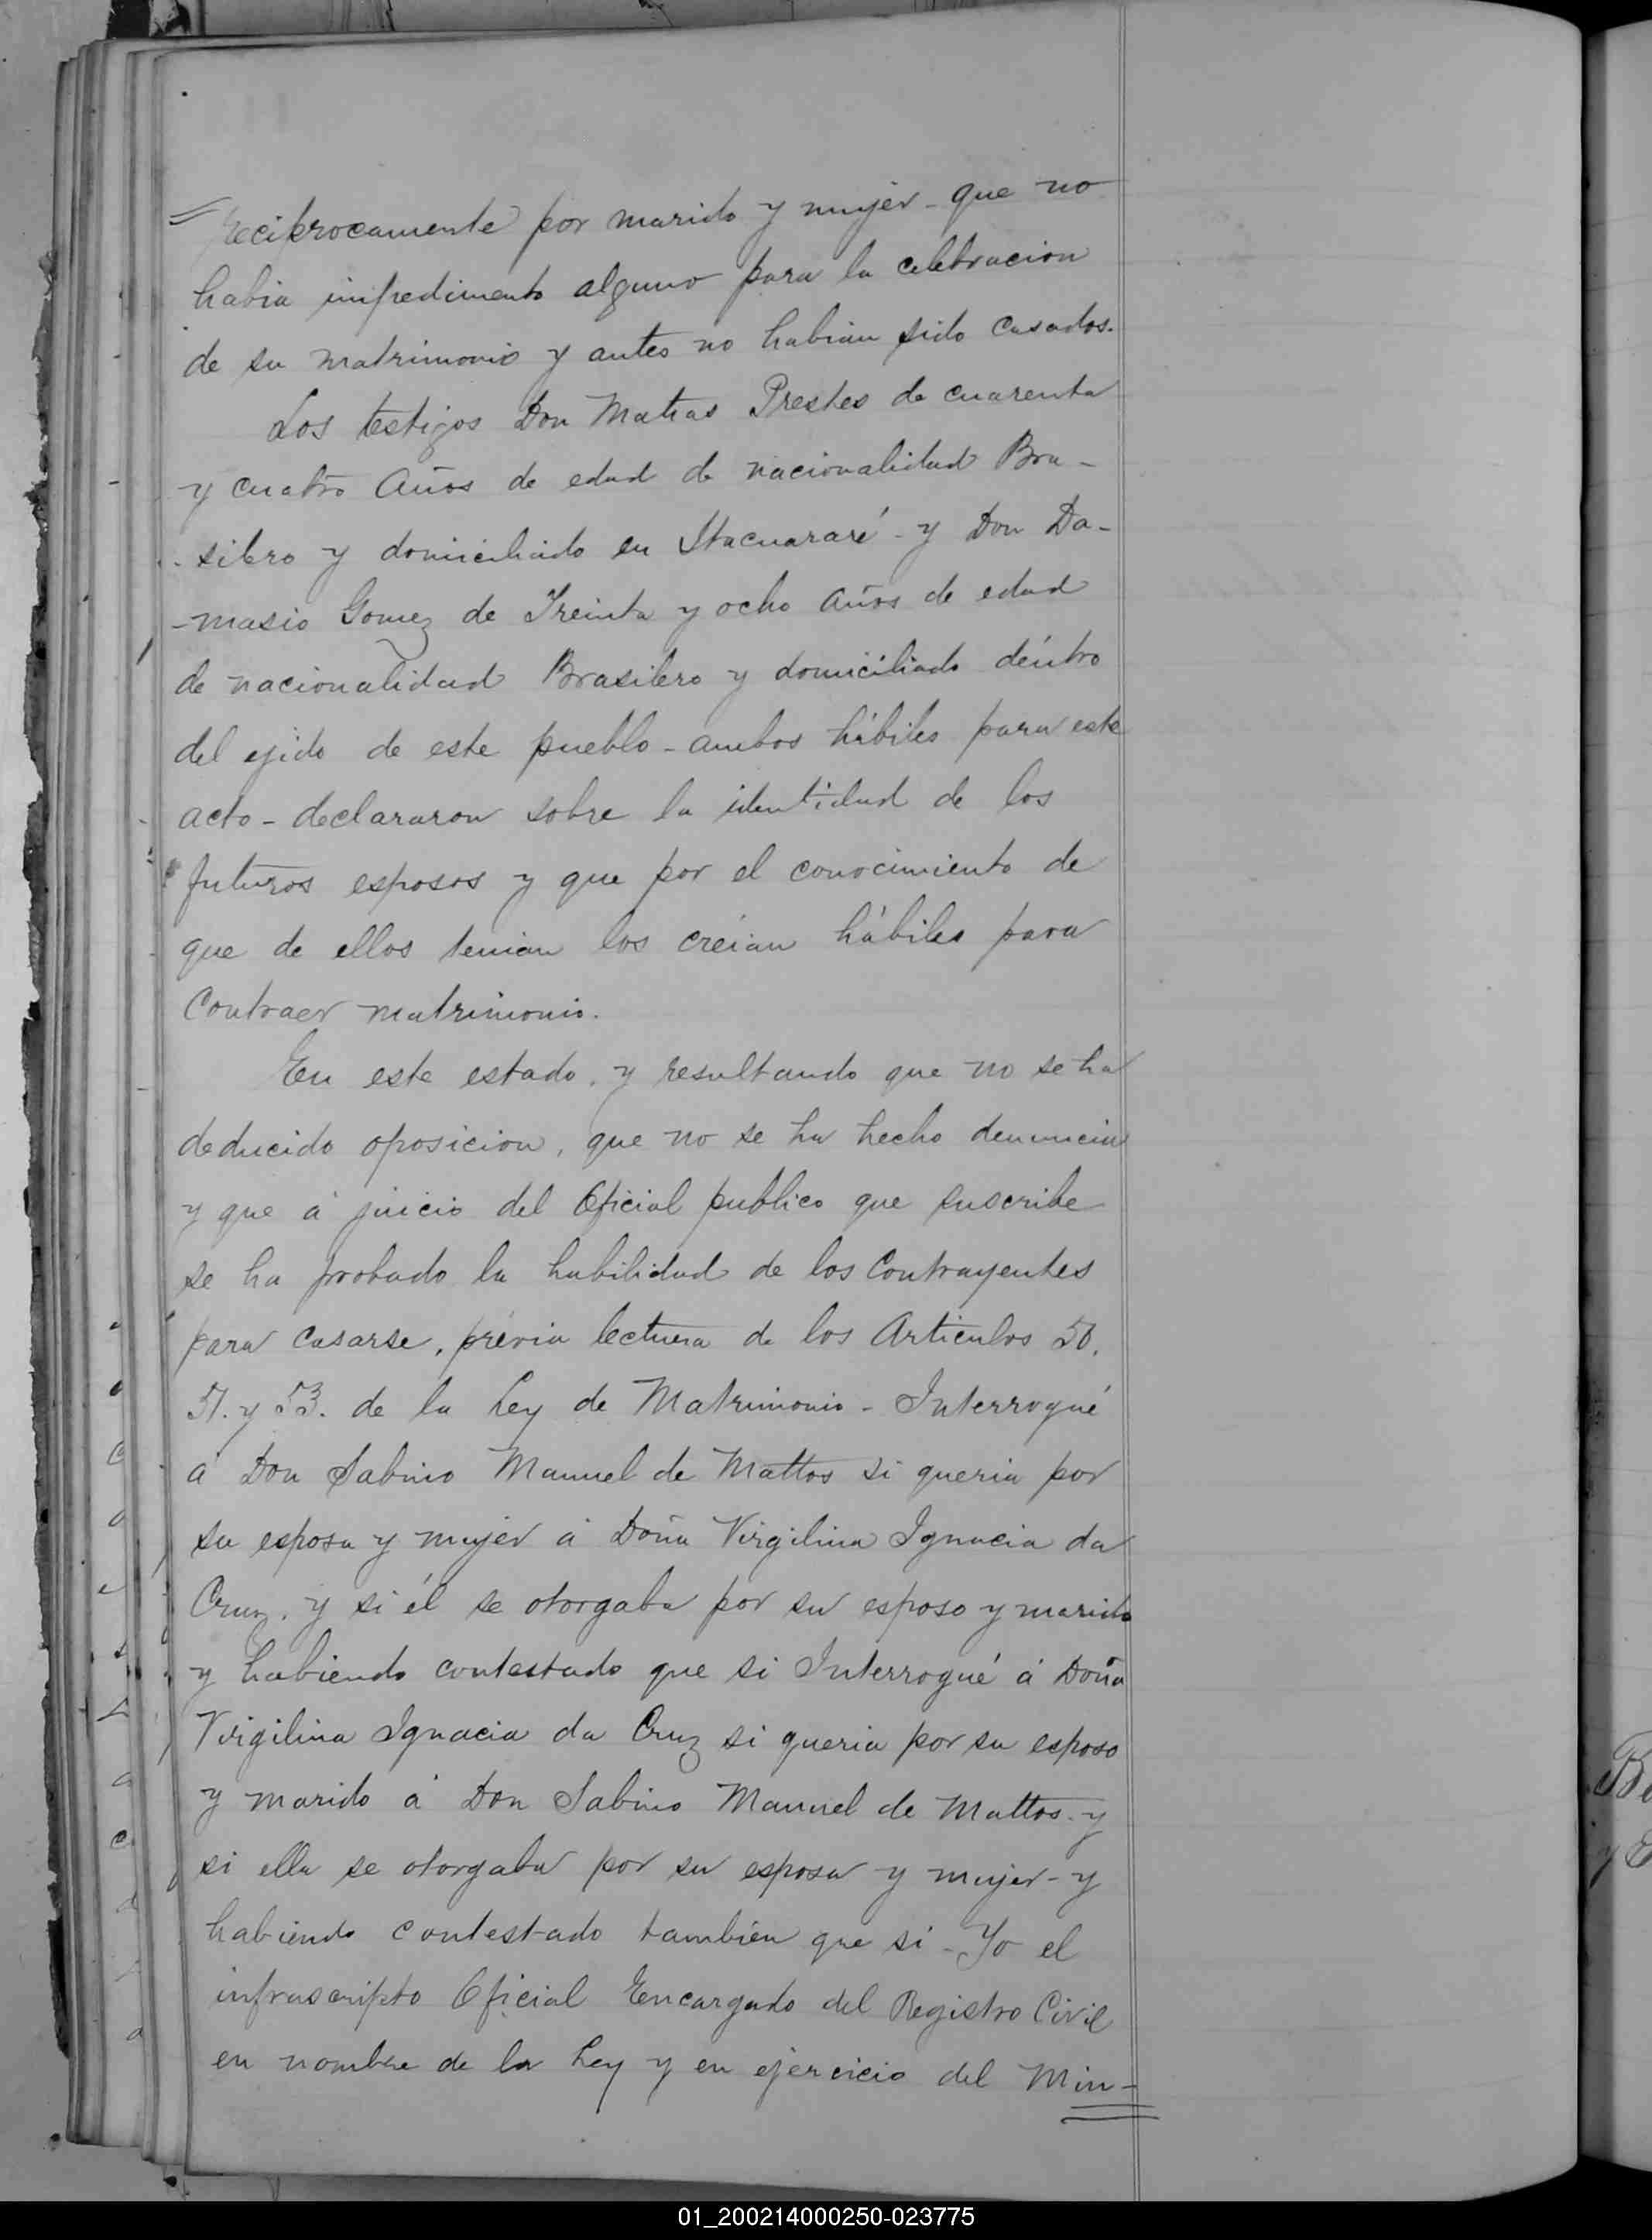 = reciprocamente por marido y mujer - que no
habia impedimento alguno para la celebracion
de su matrimonio y antes no habian sido casados.
Los testigos Don Matias Prestes de cuarenta
y cuatro Años de edad de nacionalidad Bra-
silero y domiciliado en Itacuararé - y Don Da-
-masio Gomez de Treinta y ocho años de edad
de nacionalidad Brasilero y domiciliado déntro
del ejido de este pueblo - ambos hábiles para este
acto - declararon sobre la identidad de los
futuros esposos y que por el conocimiento de
que de ellos tenian los creian hábiles para
Contraer matrimonio.
En este estado, y resultando que no se ha
deducido oposicion, que no se ha hecho denuncia
y que á juicio del Oficial publico que suscribe
se ha probado la habilidad de los Contrayentes
para casarse, prévia lectura de los Articulos 50.
51. y 53. de la Ley de Matrimonio - Interrogué
á Don Sabino Manuel de Mattos si queria por
su esposa y mujer á Doña Virgilina Ignacia da
Cruz, y si él se otorgaba por su esposo y marido
y habiendo contestado que si Interrogué á Doña
Virgilina Ignacia da Cruz si queria por su esposo
y marido á Don Sabino Manuel de Mattos - y
si ella se otorgaba por su esposa y mujer - y
habiendo contestado también que si - Yo el
infrascripto Oficial Encargado del Registro Civil
en nombre de la Ley y en ejercicio del Min-
01_200214000250-023775